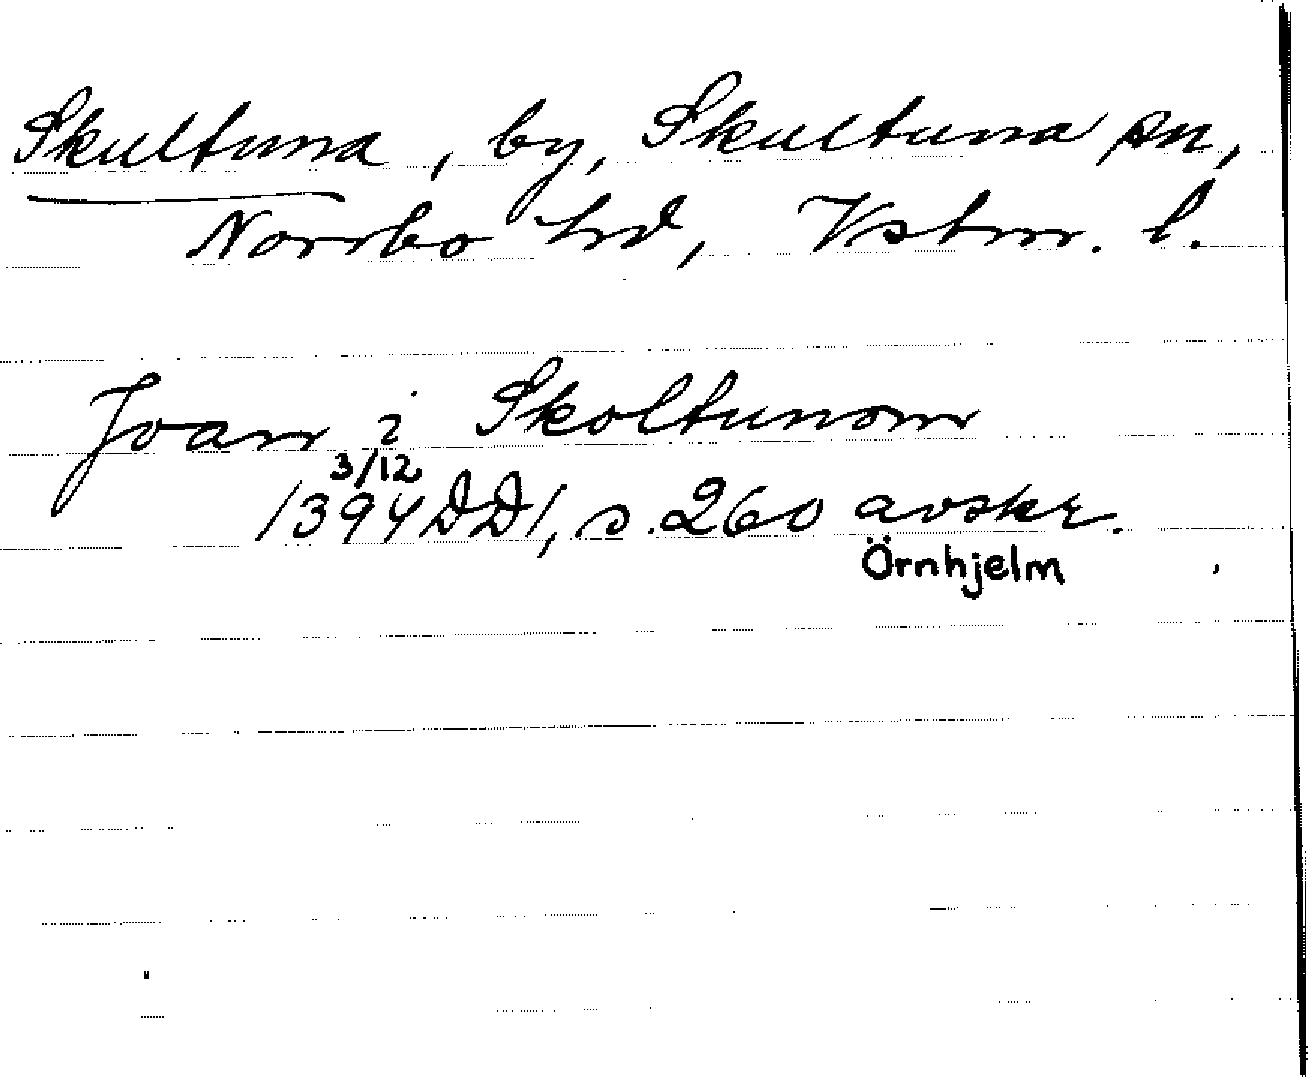 Skultuna, by, Skultuna sn,
Norrbo hd, Vstm. l.
Joan i Skoltunom
3/12
1394 DD 1, s. 260 avskr.
Örnhjelm